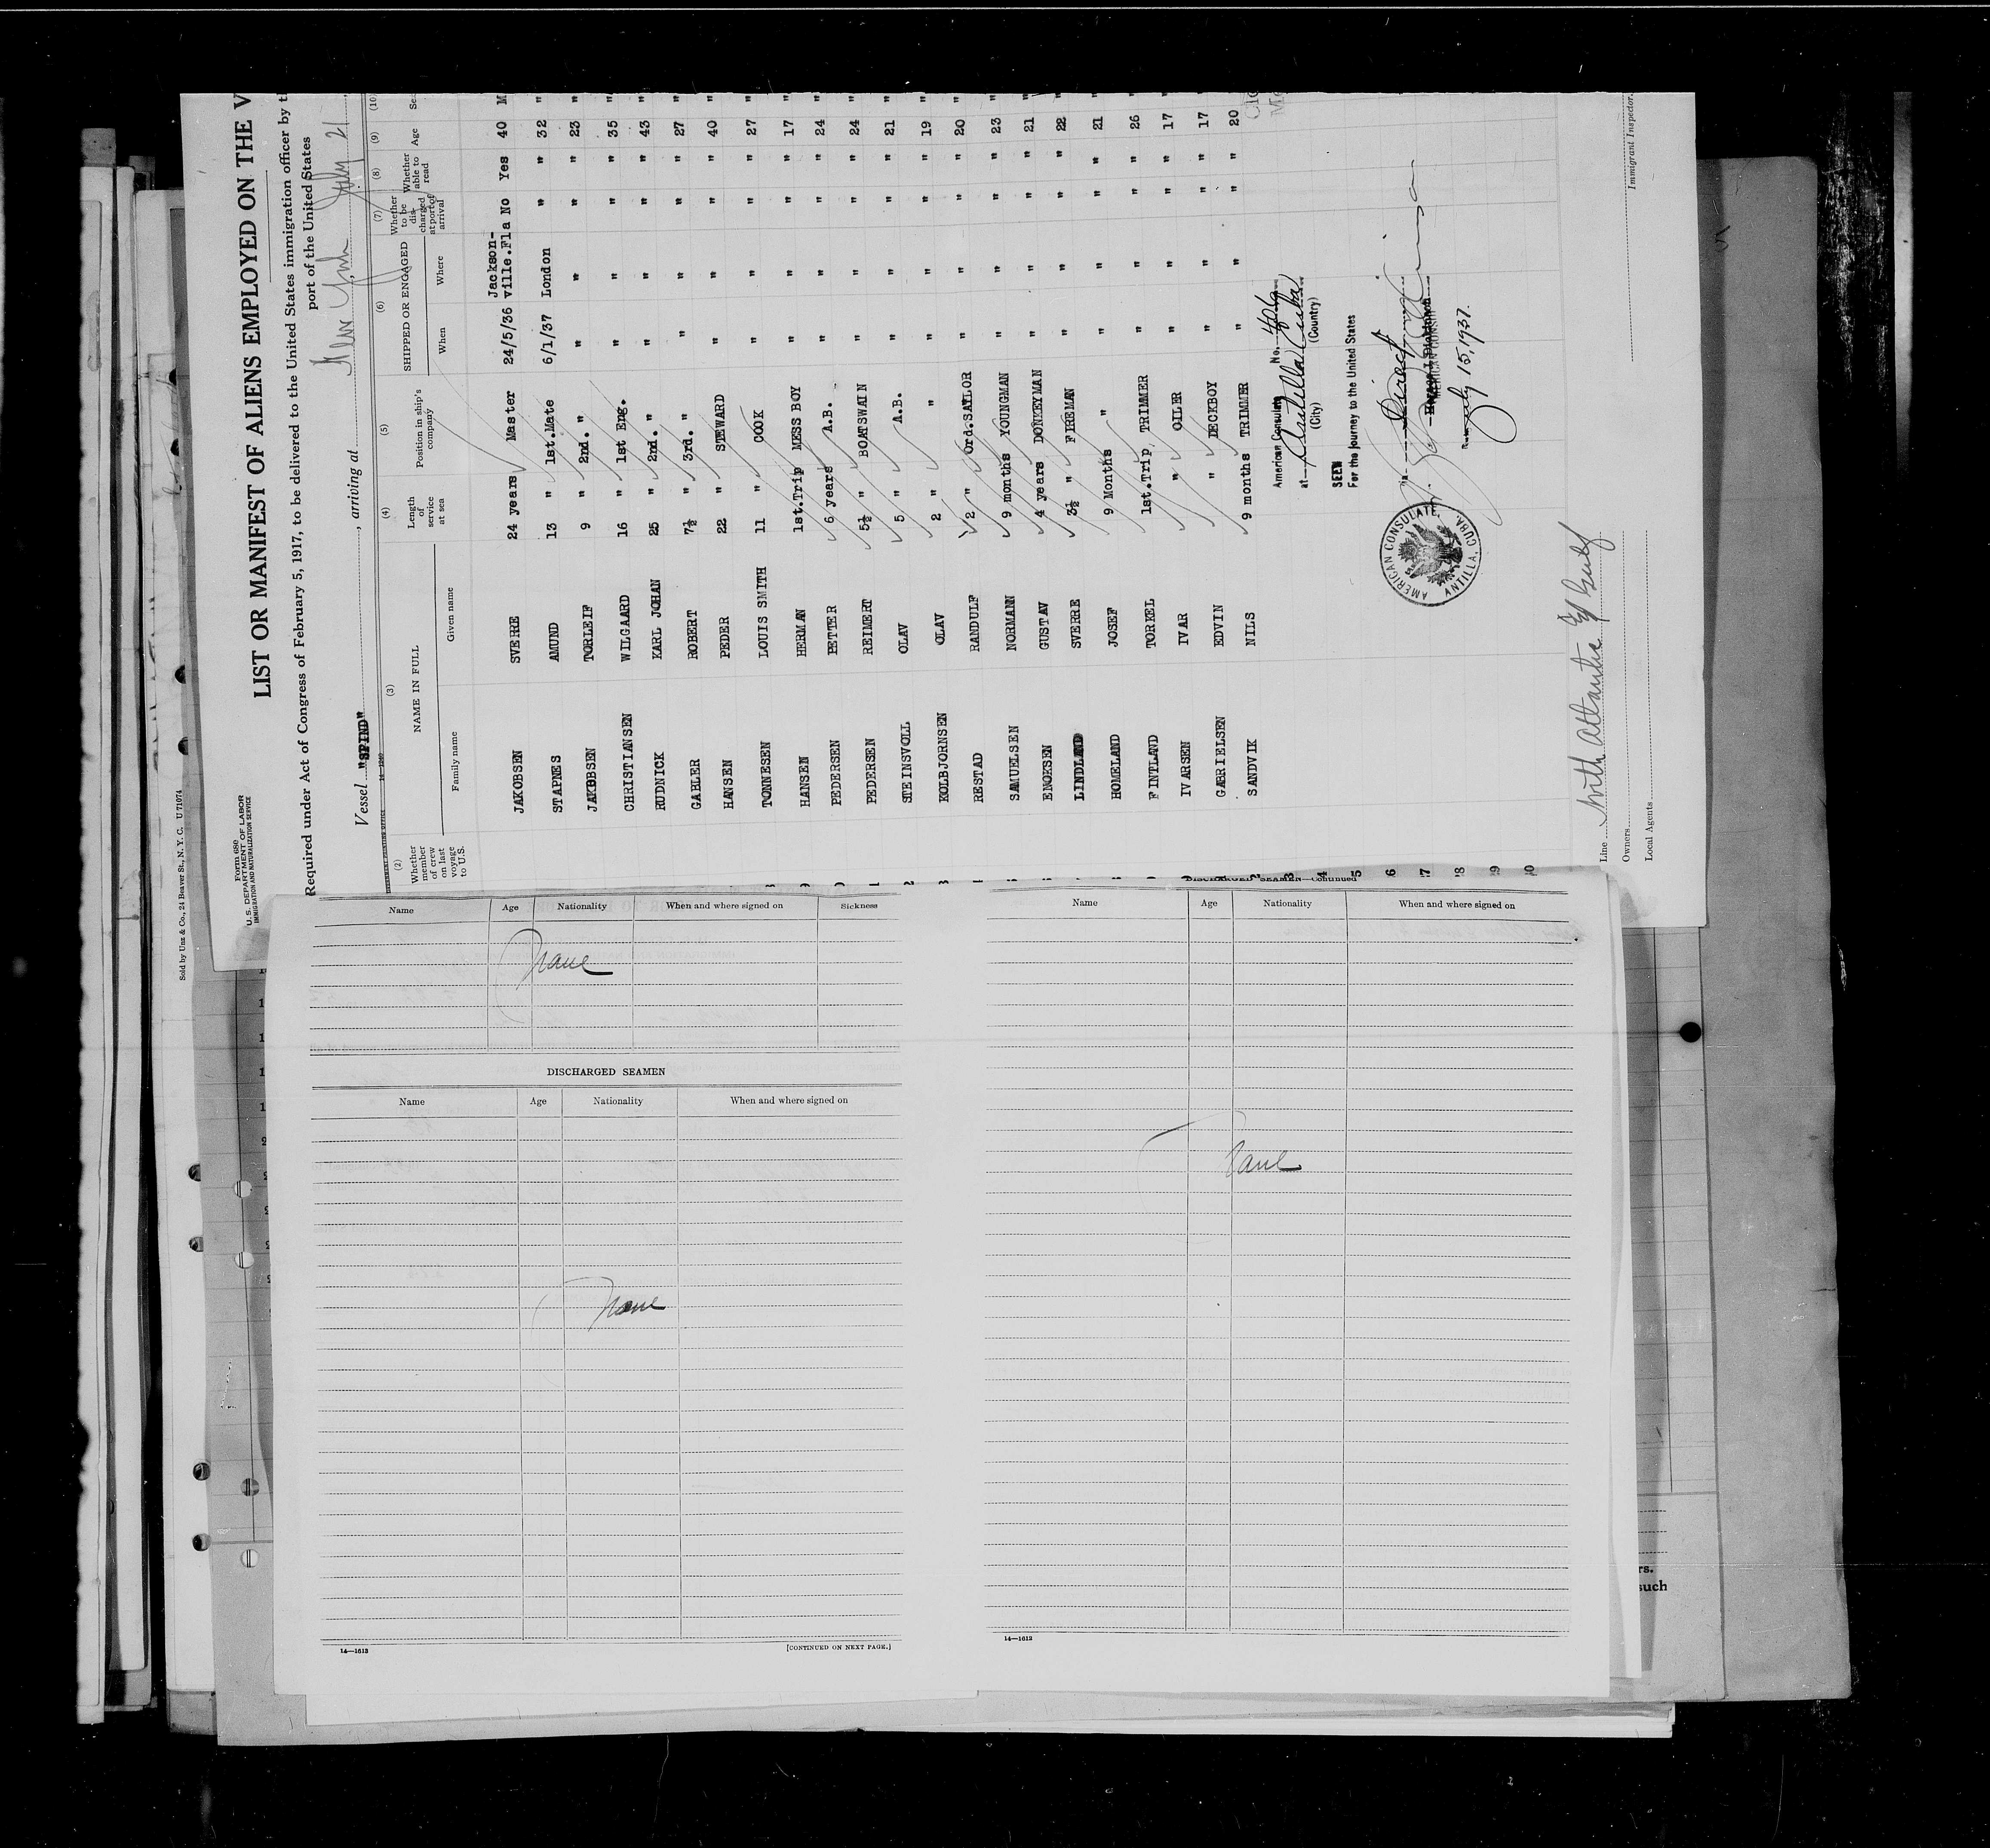 Form 680
U.S. DEPARTMENT OF LABOR
IMMIGRATION AND NATURALIZATION SERVICE
Sold by Unz & Co., 24 Beaver St., N. Y. C. U 71074
LIST OR MANIFEST OF ALIENS EMPLOYED ON THE V
Required under Act of Congress of February 5, 1917, to be delivered to the United States immigration officer by th
port of the United States
Vessel "SPIND" , arriving at New York July 21
(2) (3) (4) (5) (6) (7) (8) (9) (10)
Whether member of crew on last voyage to U.S. NAME IN FULL Family name Given name Length of service at sea Position in ship's company SHIPPED OR ENGAGED When Where Whether to be discharged at port of arrival Whether able to read Age Se
JAKOBSEN SVERRE 24 years Master 24/5/36 Jackson-ville.Fla No Yes 40 M
STAPNES AMUND 13 " 1st.Mate 6/1/37 London " " 32 "
JAKOBSEN TORLEIF 9 " 2nd. " " " " " 23 "
CHRISTIANSEN WILGAARD 16 " 1st Eng. " " " " 35 "
RUDNICK KARL JOHAN 25 " 2nd. " " " " " 43 "
GAHLER ROBERT 7½ " 3rd. " " " " " 27 "
HANSEN PEDER 22 " STEWARD " " " " 40 "
TONNESEN LOUIS SMITH 11 " COOK " " " " 27 "
HANSEN HERMAN 1st.Trip MESS BOY " " " " 17 "
PEDERSEN PETTER 6 years A.B. " " " " 24 "
PEDERSEN REIMERT 5½ " BOATSWAIN " " " " 24 "
STEINSVOLL OLAV 5 " A.B. " " " " 21 "
KOLBJORNSEN OLAV 2 " " " " " " 19 "
RESTAD RANDULF 2 " Ord.SAILOR " " " " 20 "
SAMUELSEN NORMANN 9 months YOUNGMAN " " " " 23 "
ENOKSEN GUSTAV 4 years DONKEYMAN " " " " 21 "
LINDLAND SVERRE 3½ " FIREMAN " " " " 22 "
HOMELAND JOSEF 9 Months " " " " " 21 "
FINTLAND TORKEL 1st.Trip TRIMMER " " " " 26 "
IVARSEN IVAR " OILER " " " " 17 "
GABRIELSEN EDVIN " DECKBOY " " " " 17 "
SANDVIK NILS 9 months TRIMMER " " " " 20 "
American Consulate No. 406
at Antilla Cuba
(City) (Country)
SEEN
For the journey to the United States
Direct
AMERICAN CONSUL
July 15, 1937.
AMERICAN CONSULATE
ANTILLA, CUBA.
Line North Atlantic & Gulf
Owners
Local Agents
Immigrant Inspector.
Name Age Nationality When and where signed on Sickness
None
DISCHARGED SEAMEN
Name Age Nationality When and where signed on
None
14—1613 [CONTINUED ON NEXT PAGE.]
DISCHARGED SEAMEN—Continued
Name Age Nationality When and where signed on
None
14—1612
rs.
such